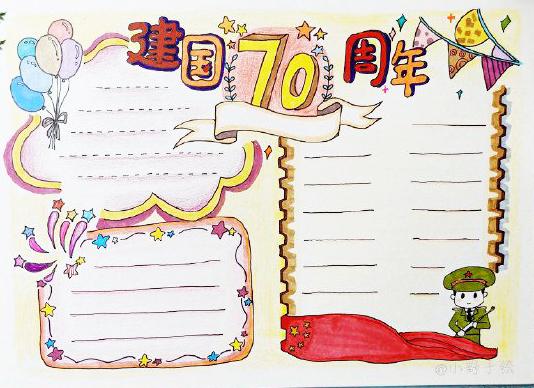 建国70周年
@小野子绘